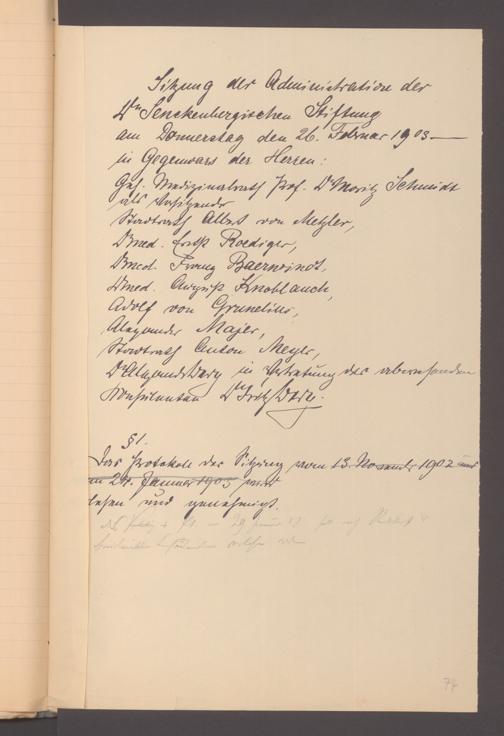 Sitzung der Administration der
Dr Senckenbergischen Stiftung
am Donnerstag den 26. Februar 1903
in Gegenwart der Herren:
Geh. Medizinalrath Prof. Dr Moritz Schmidt
als Vorsitzender
Stadtrath Albert von Metzler,
Dr med. Ernst Roediger,
Dr med. Franz Baerwindt,
Dr med. August Knoblauch,
Adolf von Grunelius,
Alexander Majer,
Stadtrath Anton Meyer,
Dr Alexander Berg in Vertretung des abwesenden
Konsulenten Dr Fritz Berg.
§ 1.
Das Protokoll der Sitzung vom 13. November 1902 und
vom 29. Januar 1903 wird
lesen und genehmigt.
74